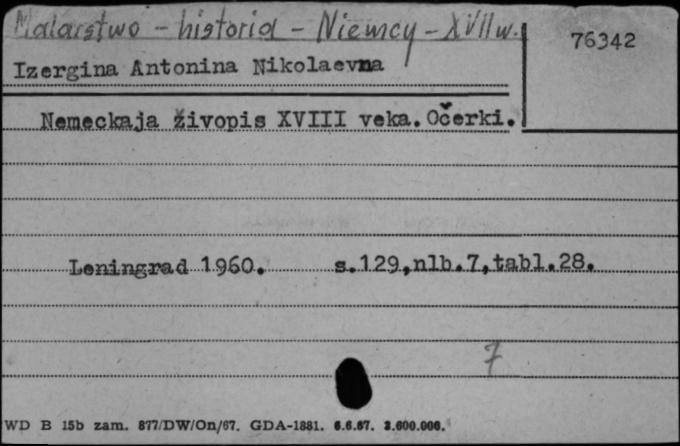 Malarstwo - historia - Niemcy - XVII w.
76342
Izergina Antonina Nikolaevna
Nemeckaja živopis XVIII veka. Očerki.
Leningrad 1960. s.129,nlb.7,tabl.28.
7
WD B 15b zam. 877/DW/On/67. GDA-1881. 6.6.67. 3.600.000.